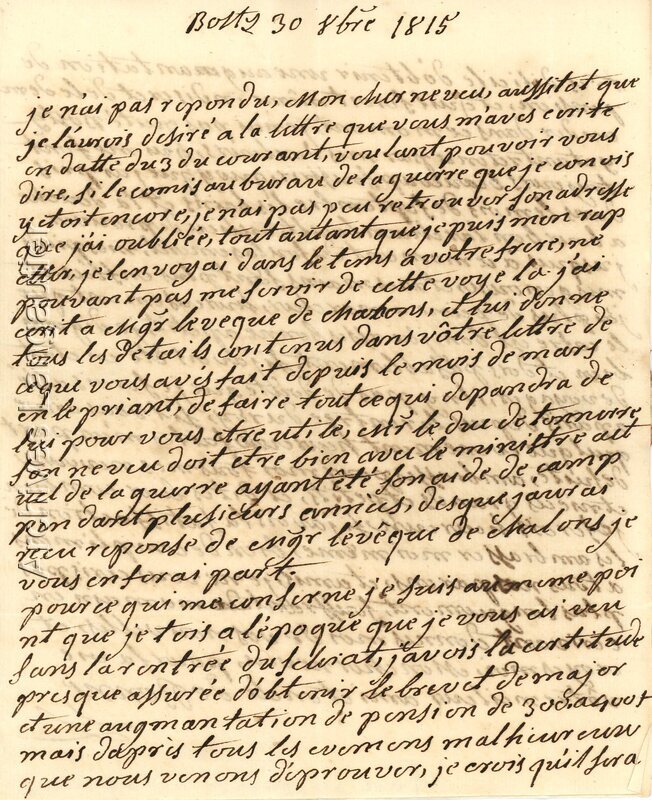 Bostz 30 8bre 1815
je n'ai pas repondu, Mon cher neveu, aussitot que
je l'aurois desiré a la lettre que vous m'avés ecrite
en datte du 3 du courant, voulant pouvoir vous
dire, si le comis au burau de la guerre que je conois
y etoit encore, je n'ai pas peu retrouver son adresse
que j'ai oubliée, tout autant que je puis m'en rap
eller, je l'envoyai dans le tems a votre frere, ne
pouvant pas me servir de cette voye la j'ai
ecrit a Mgr leveque de chalons, et lui donne
tous les details contenus dans vôtre lettre de
ceque vous avés fait depuis le mois de mars
en le priant, de faire tout ce qui depandra de
lui pour vous etre utile, Mr le duc de tonnerre
son neveu doit etre bien avec le ministre act
uel de la guerre ayant êté son aide de camp
pendant plusieurs années, desque j'aurai
recu reponse de Mgr l'évêque de chalons je
vous en ferai part.
pour ce qui me conserne je suis au meme poi
nt que j'etois a l'époque que je vous ai veu
sans la rentrée du selerat, j'avois la certitude
presque assurée d'obtenir le brevet de major
et une augmantation de pension de 300 a 400tt
mais d'après tous les evemens malheureux
que nous venons d'eprouver, je crois qu'il sera
Archives Lamartinière